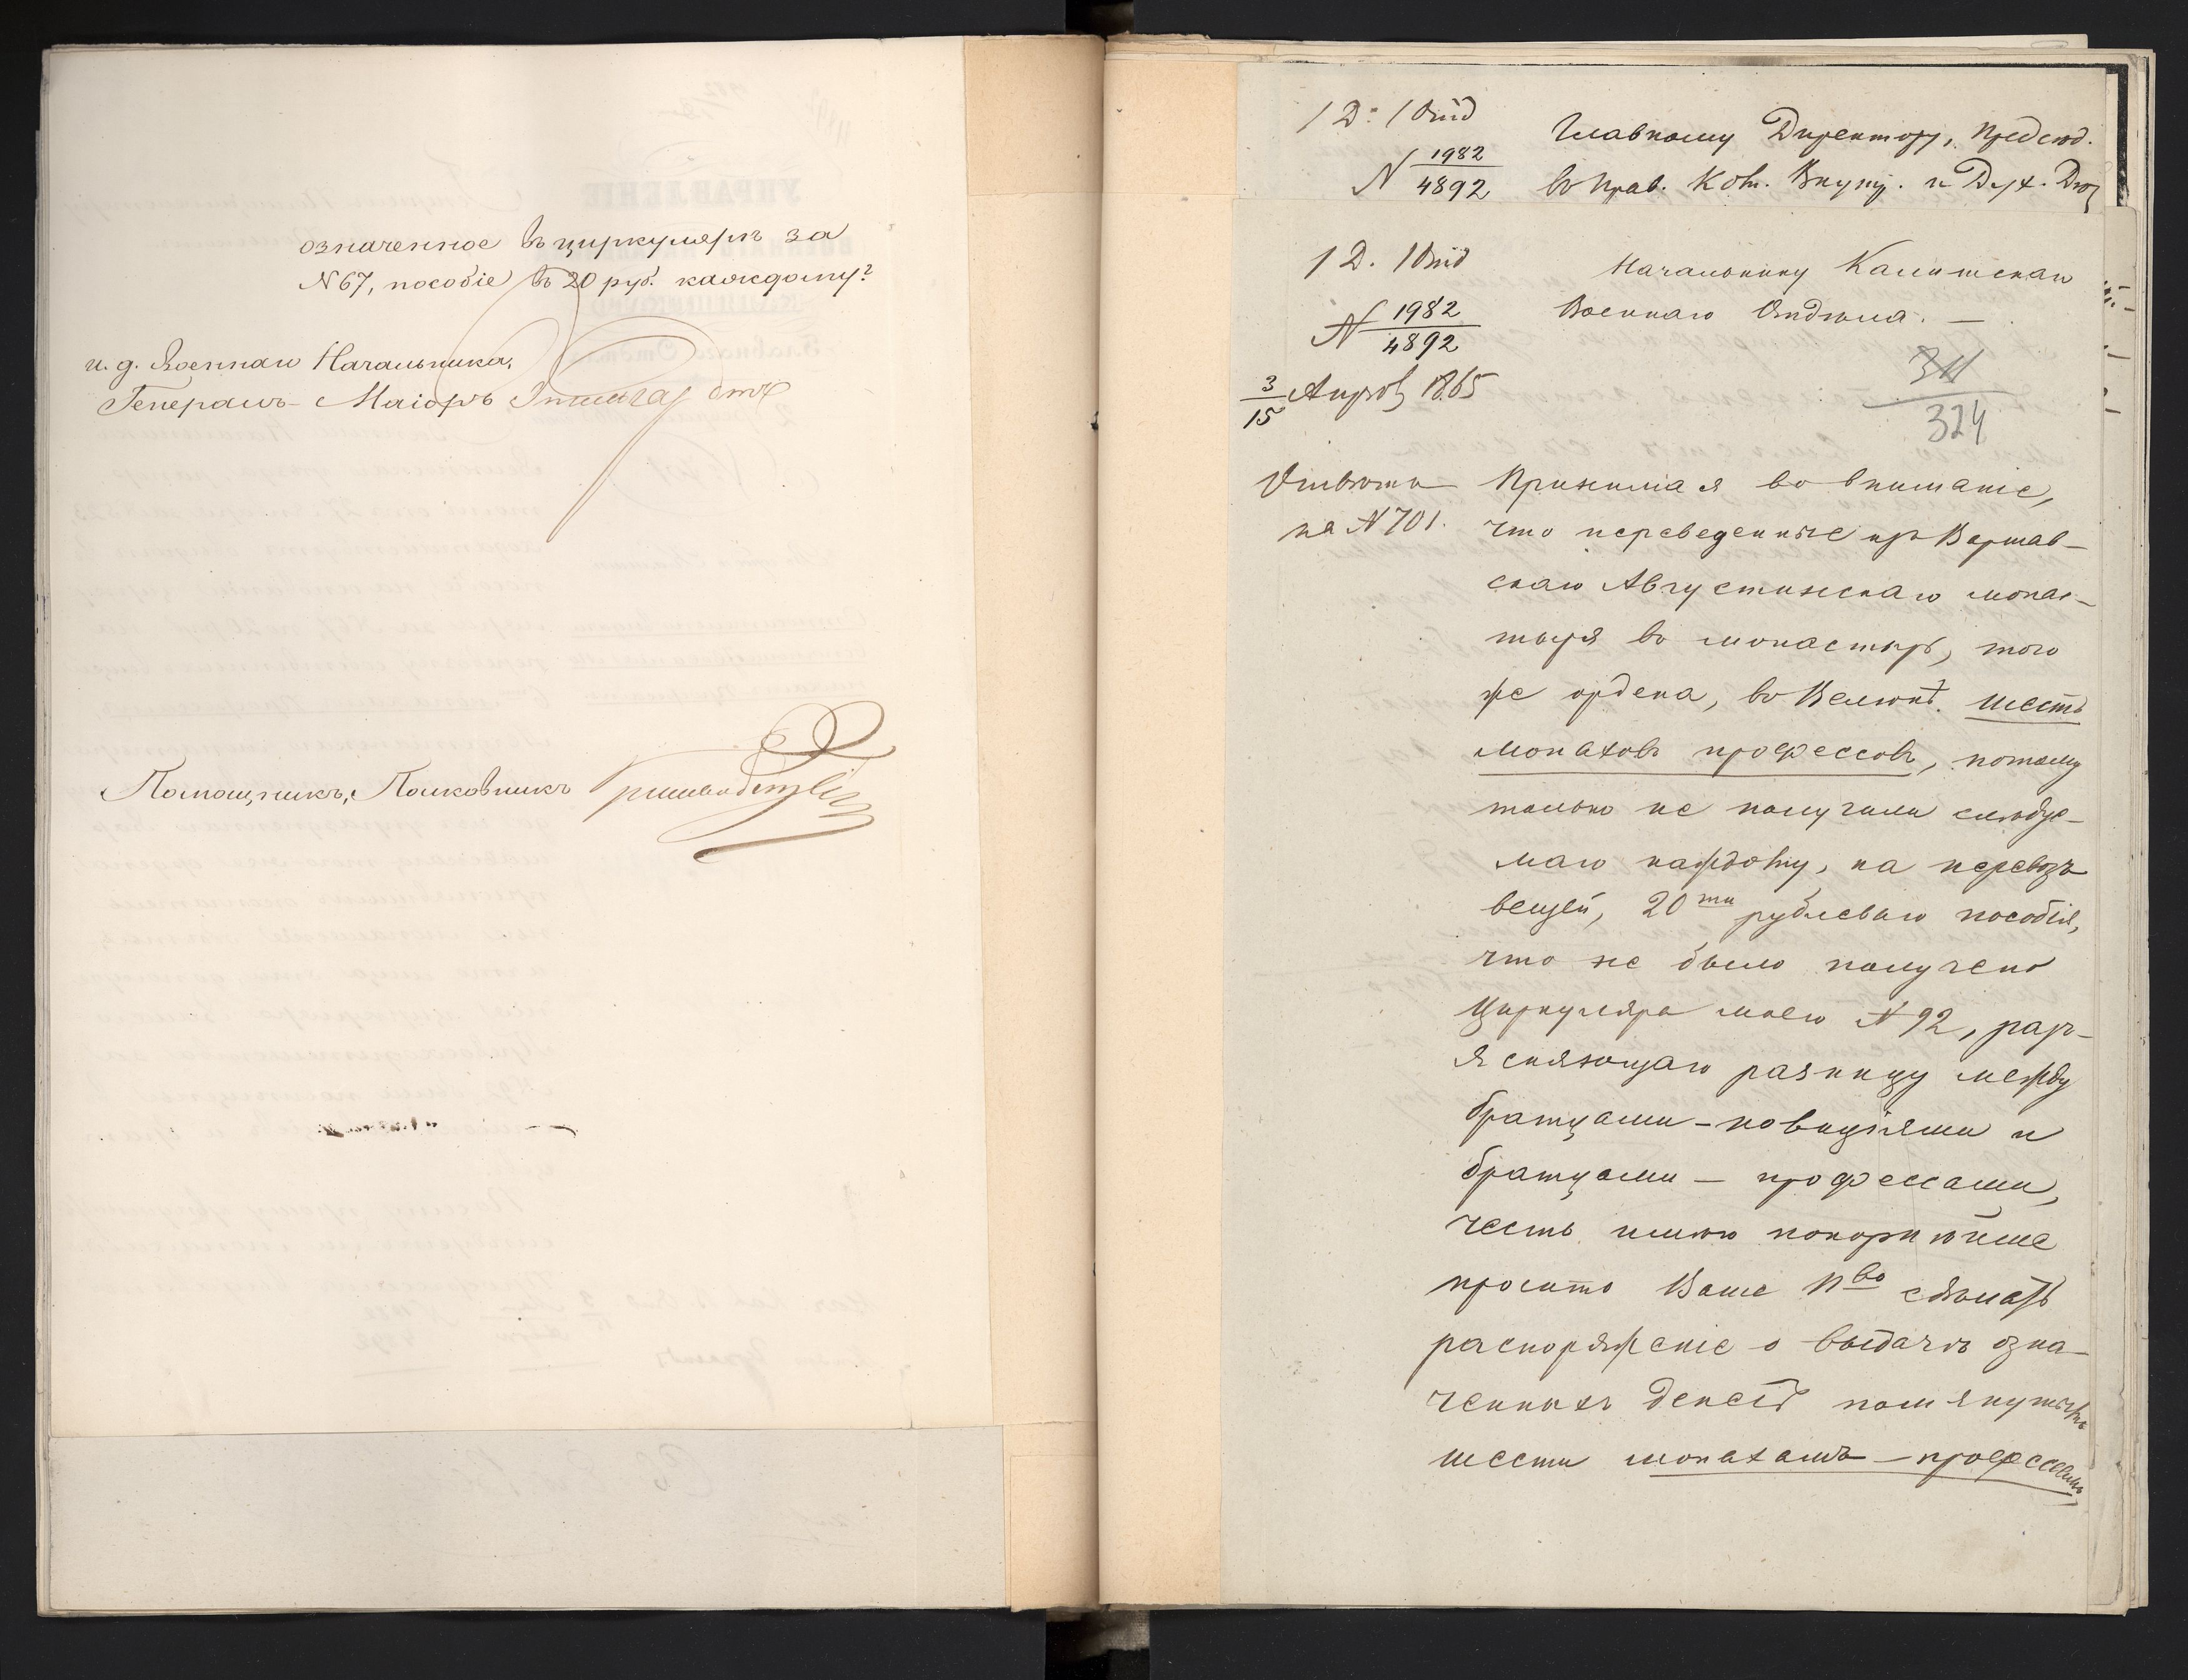 означенное въ циркулярѣ за
№ 67, пособіе въ 20 руб. каждому?
и. д. Военнаго Начальника,
Генералъ-Маіоръ
Помощникъ, Полковникъ
1 Д. 1 Отд
№ 1982
4892
Главному Директору, Предсѣд.
въ Прав. Ком. Внутр. и Дух. Дѣл
1 Д. 1 Отд
№ 1982
4892
3
15 Апрѣл 1865
Начальнику Калишскаго
Военнаго Отдѣла. —
311
324
Отвѣтъ
на № 701.
Принимая во вниманіе,
что переведенные изъ Варшав-
скаго Августинскаго монас-
тыря въ монастырь, того
же ордена, въ Велюнѣ. шесть
монаховъ профессовъ, потому
только не получили слѣдуе-
маго каждому, на перевозъ
вещей, 20ти рублеваго пособія,
что не было получено
Циркуляра моего № 92, разъ-
ясняющаго разницу между
братцами-новиціями и
братцами — профессами,
честь имѣю покорнѣйше
просить Ваше Пво сдѣлать
распоряженіе о выдачѣ озна-
ченныхъ денегъ помянутымъ
шести монахамъ-профессамъ,